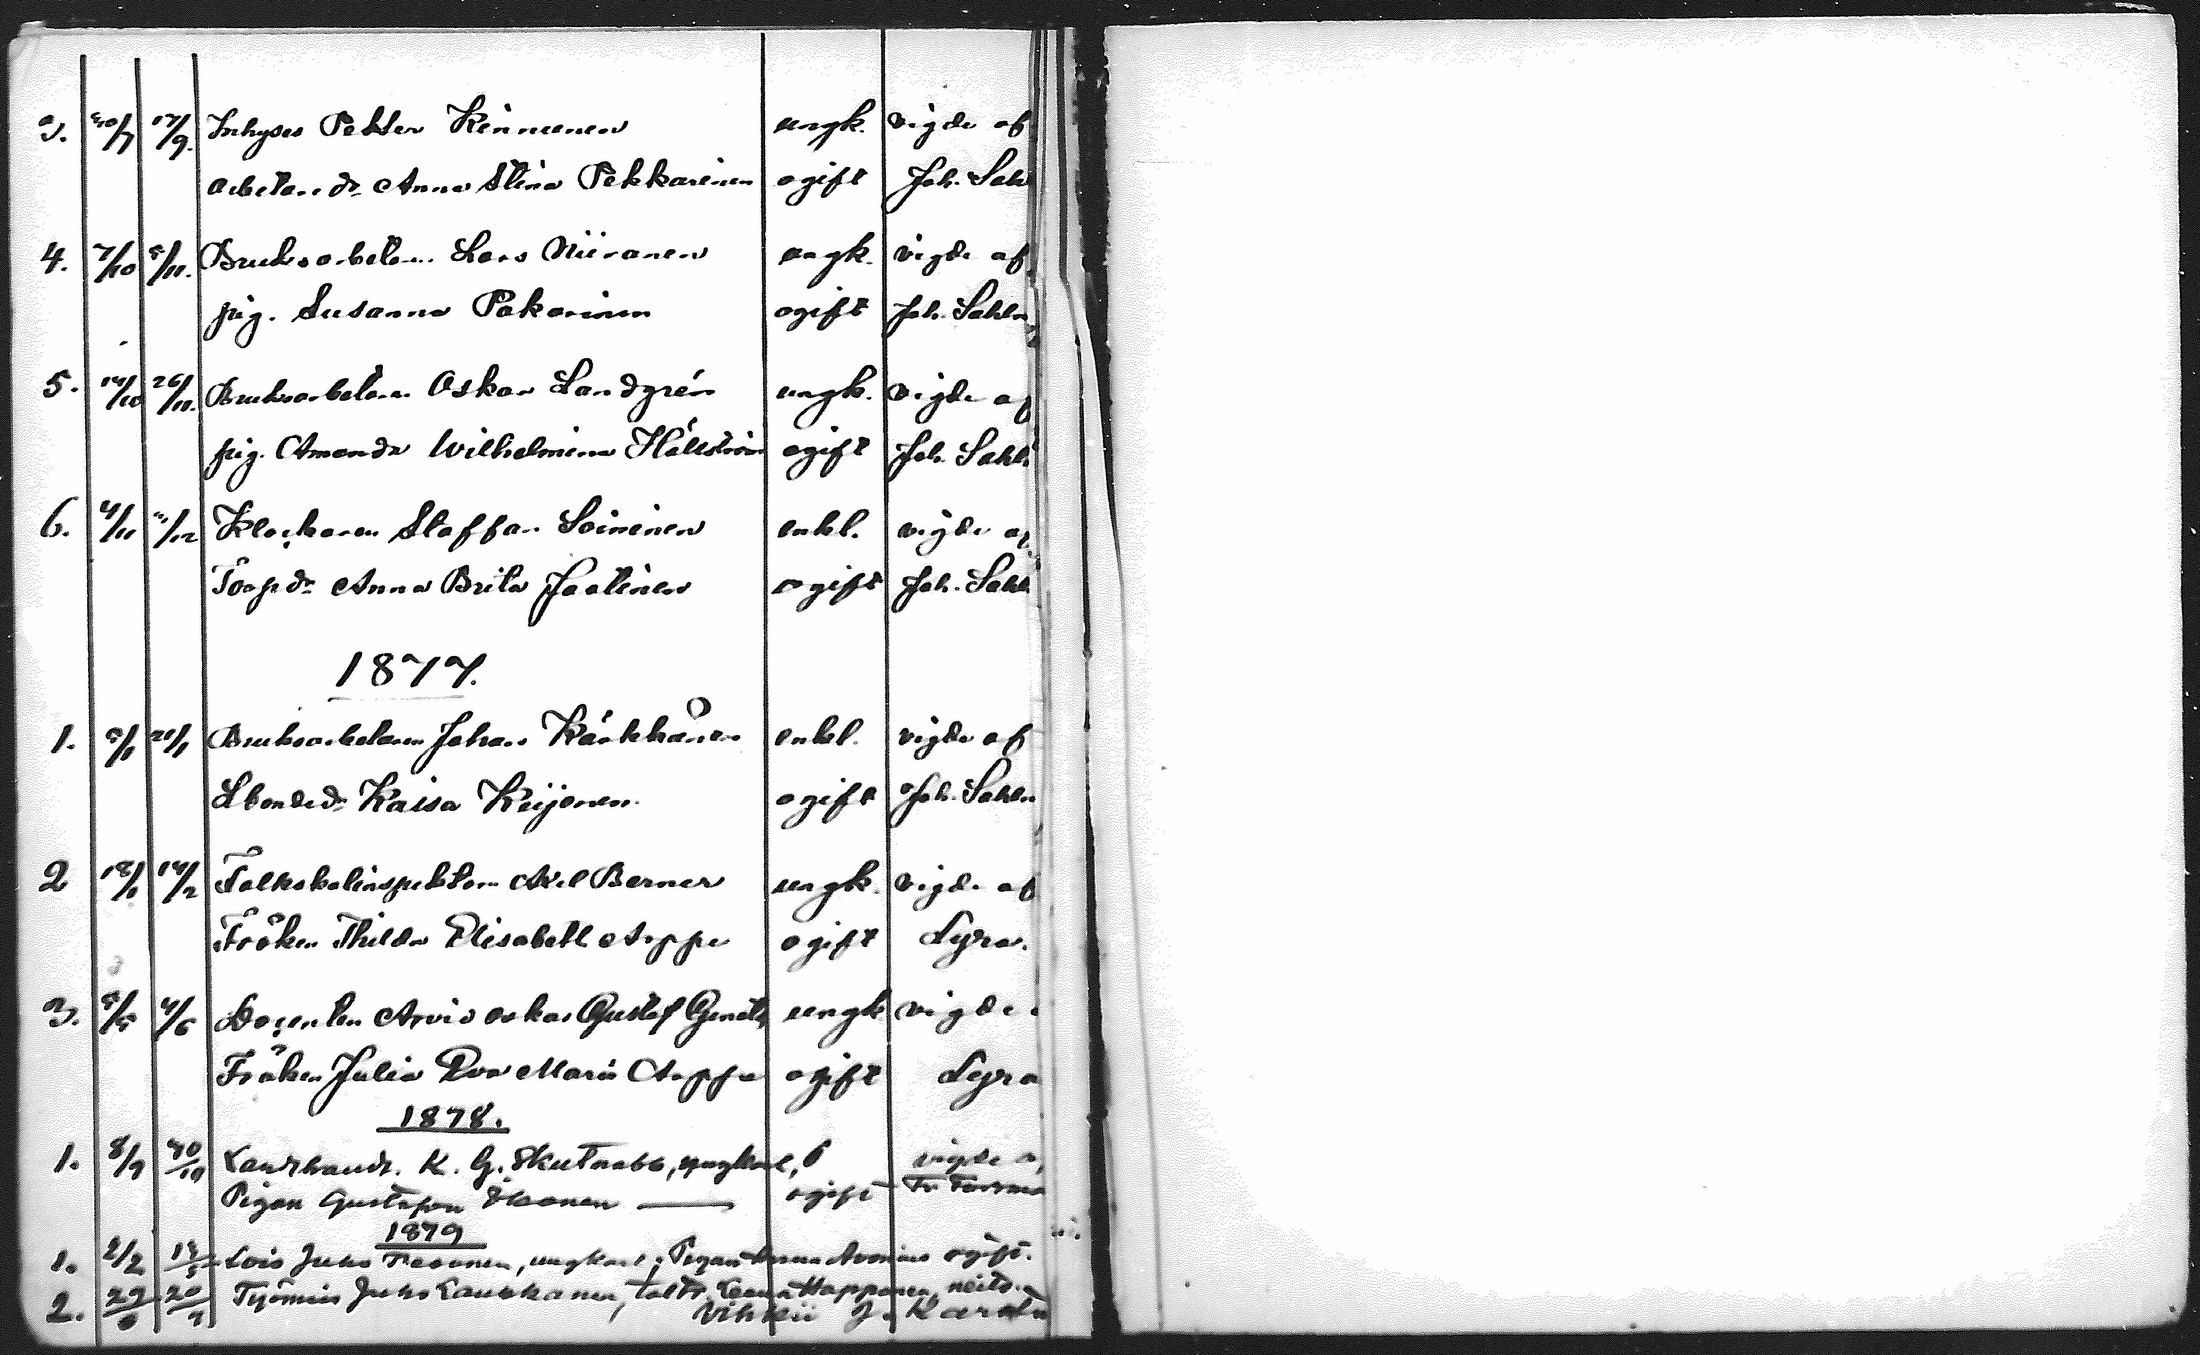 3. 30/7 17/9. Inhyses Petter Kinnunen ungk. vigde af
arbetare dr Anna Stina Pekkarinen ogift Joh. Sahl
4. 7/10 5/11. Bruksarbetare Lars Niiranen ungk. vigde af
pig. Susanna Pakarinen ogift Joh. Sahln
5. 14/10 26/11. Bruksarbetaren Oskar Landgrén ungk. vigde af
pig. Amanda Wilhelmina Hällström ogift Joh. Sahl
6. 4/11 /12 Klockaren Staffan Soininen enkl. vigde af
Torp dr Anna Brita Jaatinen ogift Joh. Sahl
1877.
1. 5/1 20/1 Bruksarbetaren Johan Kärkkänen enkl. vigde af
Lbonde dr Kaisa Keijonen. ogift Joh. Sahln
2 18/1 14/2 Folkskolinspektorn Axel Berner ungk. vigde af
Fröken Thilda Elisabeth Arppe ogift Lyra.
3. 5/5 4/6 Docenten Arvid Oskar Gustaf Genetz ungk vigde
Fröken Julia Eva Maria Arppe ogift Lyra
1878.
1. 8/9 30/10 Landthandl. K. G. Skutnabb, ungkarl, vigde a
Pigan Gustafva Ikonen — ogift Fr. Forsma
1879
1. 2/2 Lois Juho ungkarl; Pigan Anna ogift.
2. 29 20 Työmies Juho Laukkanen, talt. Leena Happonen, neito.
Vihkii J. Karst